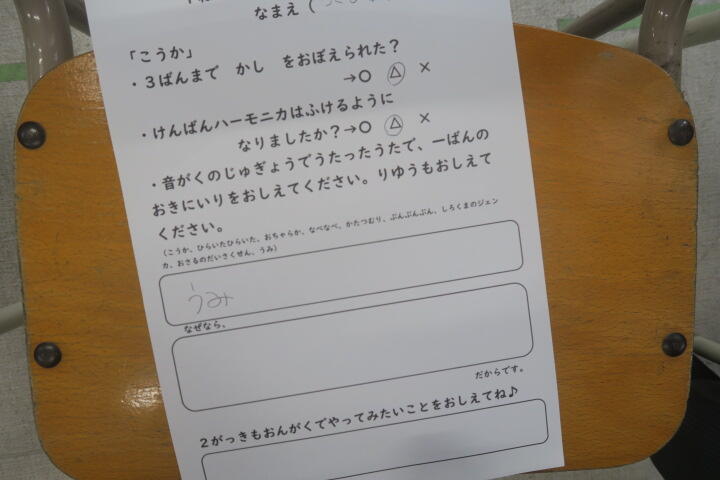 なまえ（
「こうか」
・３ばんまで　かし　をおぼえられた？
→○　△　×
・けんばんハーモニカはふけるように
なりましたか？→○　△　×
・音がくのじゅぎょうでうたったうたで、一ばんの
おきにいりをおしえてください。りゆうもおしえて
ください。
（こうか、ひらいたひらいた、おちゃらか、なべなべ、かたつむり、ぶんぶんぶん、しろくまのジェン
カ、おさるのだいさくせん、うみ）
うみ
なぜなら、
だからです。
２がっきもおんがくでやってみたいことをおしえてね♪